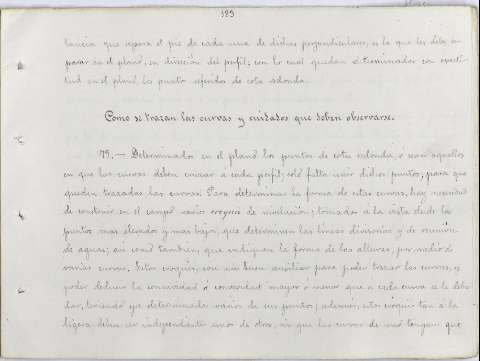 189
tancia que separa el pié de cada una de dichas perpendiculares, es la que les debe se-
parar en el plano, en dirección del perfil; con lo cual quedan determinados con exacti-
tud en el plano los puntos referidos de cota redonda.
Como se trazan las curvas y cuidados que deben observarse.
79.— Determinados en el plano los puntos de cota redonda, ó sean aquellos
en que las curvas deben cruzar á cada perfil; solo falta unir dichos puntos, para que
queden trazadas las curvas. Para determinar la forma de estas curvas, hay necesidad
de construir en el campo varios croquis de nivelación; tomados á la vista desde los
puntos mas elevados y mas bajos, que determinan las lineas divisorias y de reunión
de aguas; así como tambien, que indiquen la forma de las alturas, por medio de
varias curvas. Estos croquis, son un buen auxiliar para poder trazar las curvas, y
poder deducir la concavidad ó convexidad mayor ó menor que á cada curva se le debe
dar, teniendo ya determinados varios de sus puntos; además, estos croquis tan á la
ligera, deben ser independientes unos de otros, sin que las curvas de uno tengan que